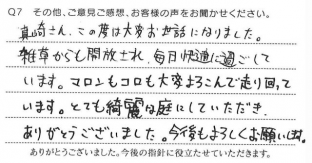 Q7 その他、ご意見ご感想、お客様の声をお聞かせください。
真崎さん、この度は大変お世話になりました。
雑草からも開放され、毎日快適に過ごして
います。マロンもコロも大変よろこんで走り回って
います。とても綺麗な庭にしていただき
ありがとうございました。今後もよろしくお願いします。
ありがとうございました。今後の指針に役立たせていただきます。